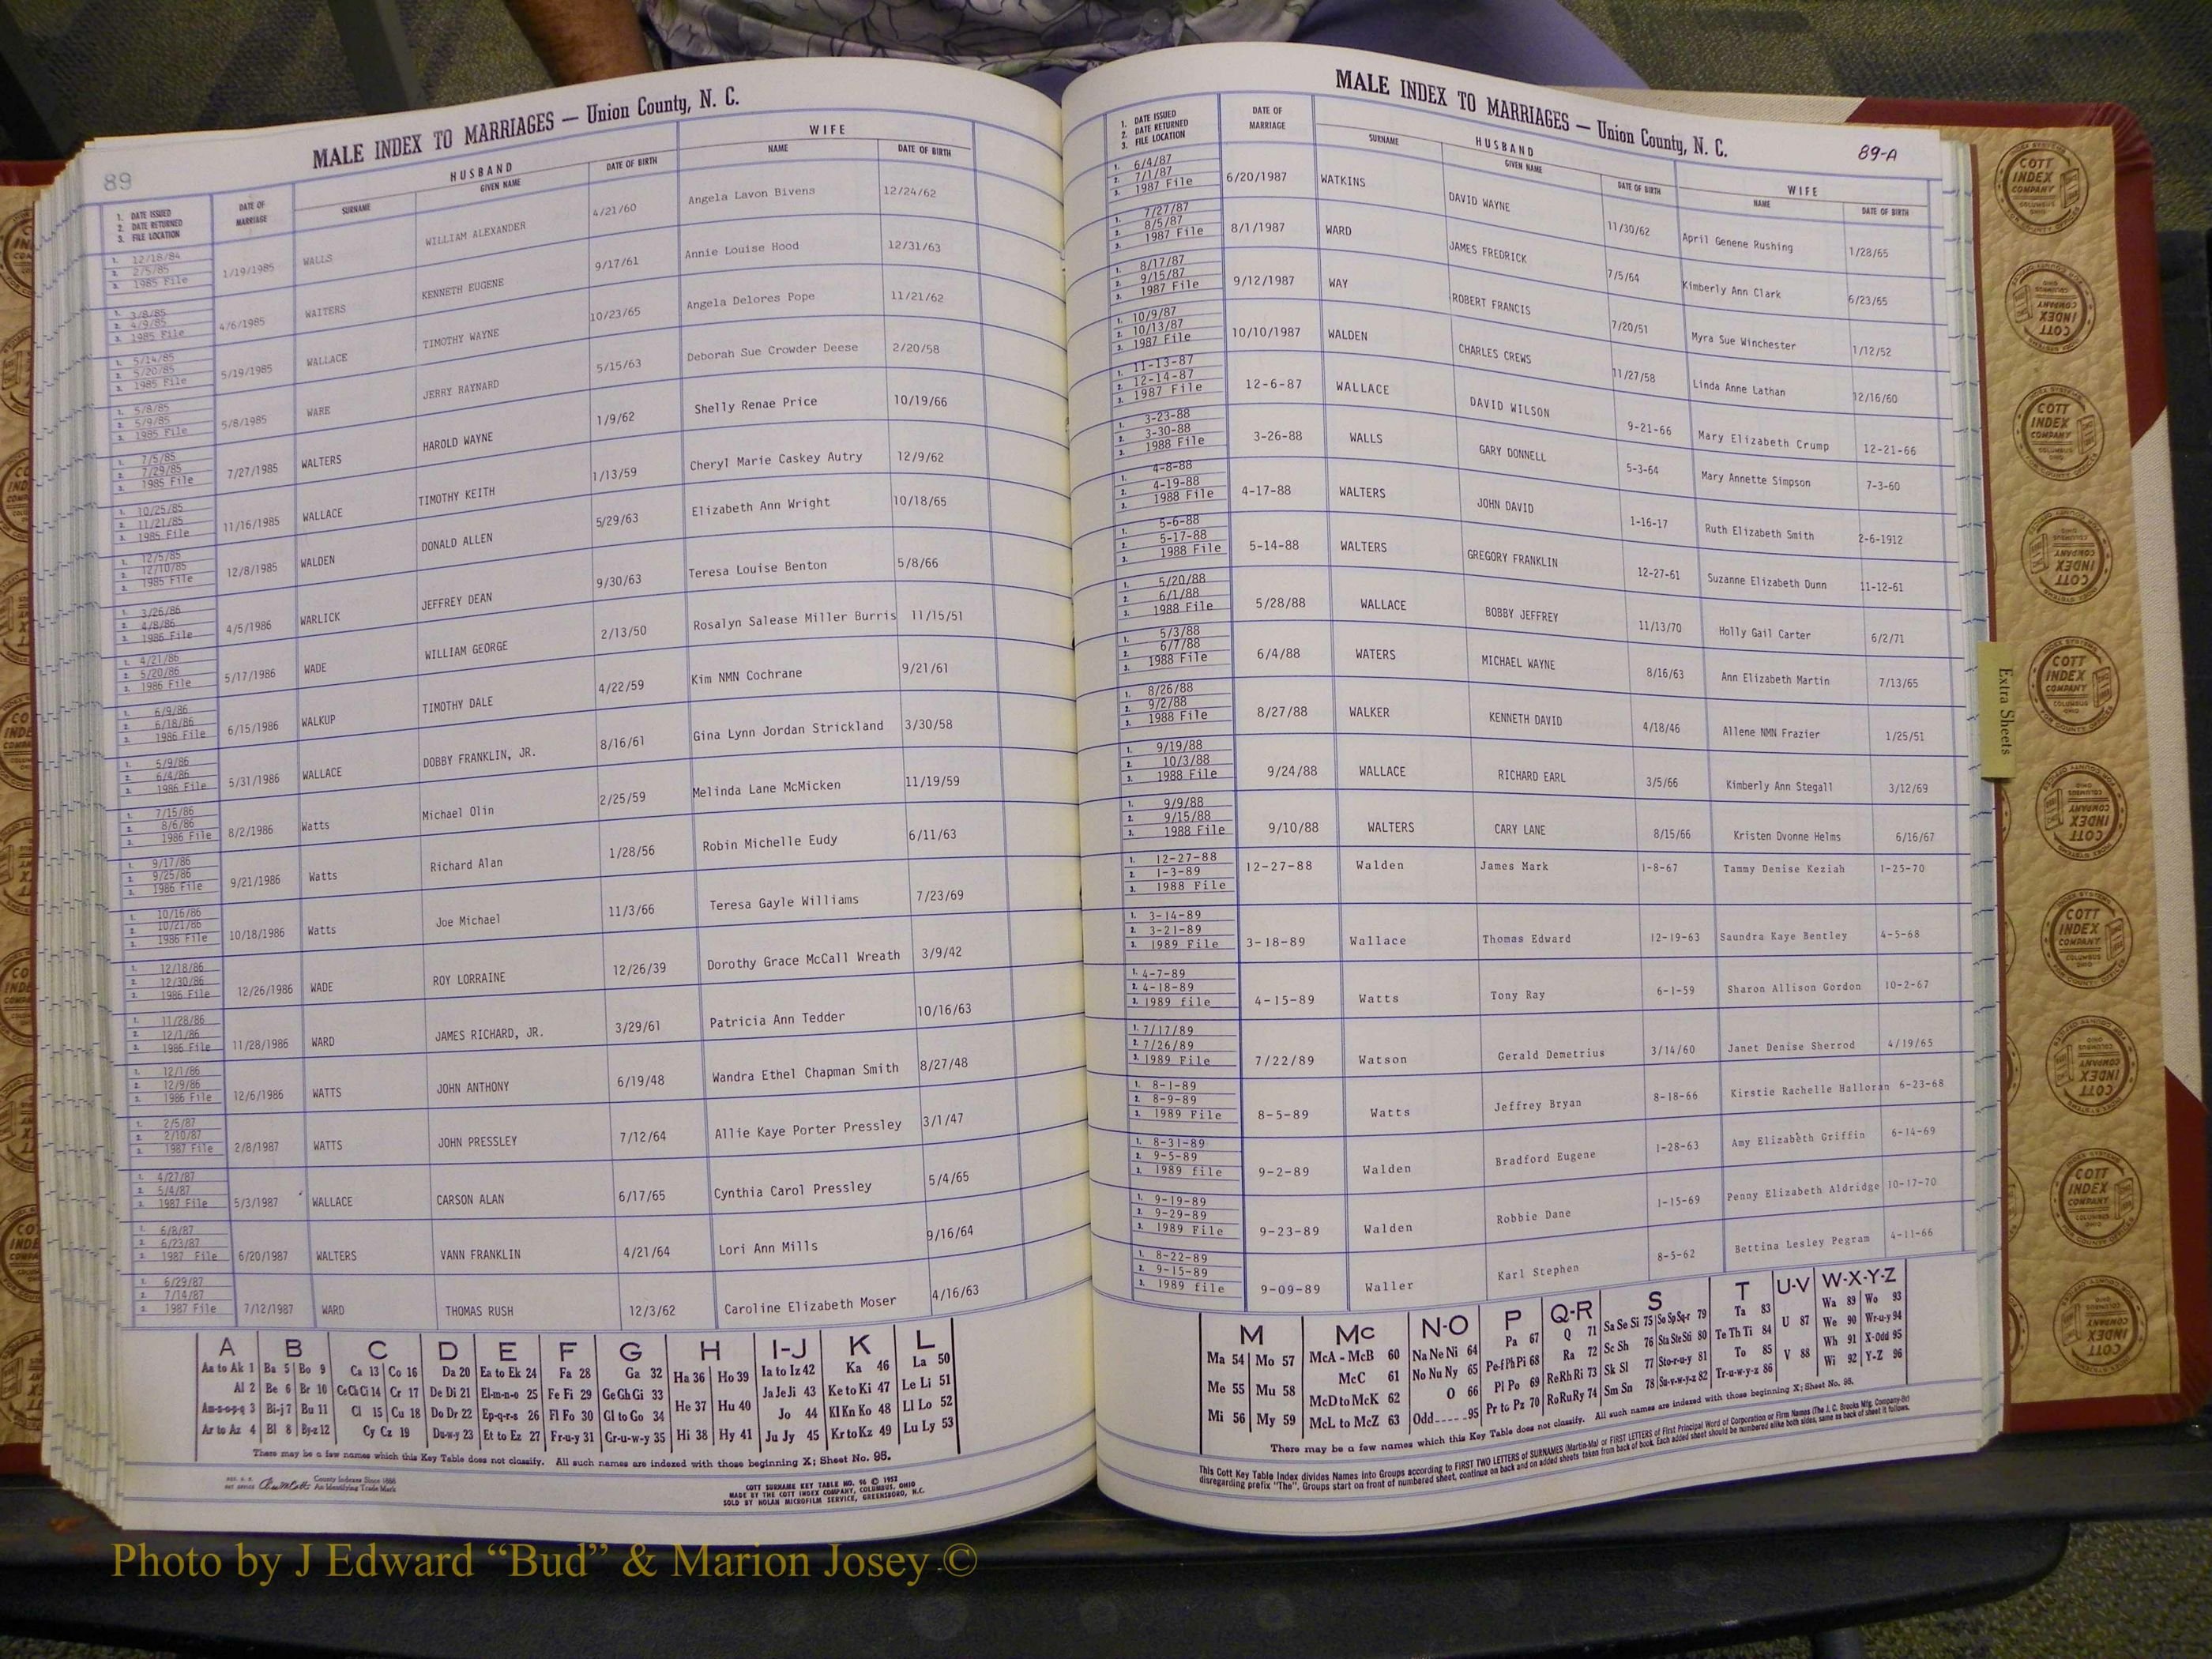 MALE INDEX TO MARRIAGES — Union County, N. C.
89
1. DATE ISSUED 2. DATE RETURNED 3. FILE LOCATION
DATE OF MARRIAGE
HUSBAND
SURNAME GIVEN NAME DATE OF BIRTH
WIFE
NAME DATE OF BIRTH
1. 12/18/84 2. 2/5/85 3. 1985 File 1/19/1985 WALLS WILLIAM ALEXANDER 4/21/60 Angela Lavon Bivens 12/24/62
1. 3/8/85 2. 4/9/85 3. 1985 File 4/6/1985 WAITERS KENNETH EUGENE 9/17/61 Annie Louise Hood 12/31/63
1. 5/14/85 2. 5/20/85 3. 1985 File 5/19/1985 WALLACE TIMOTHY WAYNE 10/23/65 Angela Delores Pope 11/21/62
1. 5/8/85 2. 5/9/85 3. 1985 File 5/8/1985 WARE JERRY RAYNARD 5/15/63 Deborah Sue Crowder Deese 2/20/58
1. 7/5/85 2. 7/29/85 3. 1985 File 7/27/1985 WALTERS HAROLD WAYNE 1/9/62 Shelly Renae Price 10/19/66
1. 10/25/85 2. 11/21/85 3. 1985 File 11/16/1985 WALLACE TIMOTHY KEITH 1/13/59 Cheryl Marie Caskey Autry 12/9/62
1. 12/5/85 2. 12/10/85 3. 1985 File 12/8/1985 WALDEN DONALD ALLEN 5/29/63 Elizabeth Ann Wright 10/18/65
1. 3/26/86 2. 4/8/86 3. 1986 File 4/5/1986 WARLICK JEFFREY DEAN 9/30/63 Teresa Louise Benton 5/8/66
1. 4/21/86 2. 5/20/86 3. 1986 File 5/17/1986 WADE WILLIAM GEORGE 2/13/50 Rosalyn Salease Miller Burris 11/15/51
1. 6/9/86 2. 6/18/86 3. 1986 File 6/15/1986 WALKUP TIMOTHY DALE 4/22/59 Kim NMN Cochrane 9/21/61
1. 5/9/86 2. 6/4/86 3. 1986 File 5/31/1986 WALLACE DOBBY FRANKLIN, JR. 8/16/61 Gina Lynn Jordan Strickland 3/30/58
1. 7/15/86 2. 8/6/86 3. 1986 File 8/2/1986 Watts Michael Olin 2/25/59 Melinda Lane McMicken 11/19/59
1. 9/17/86 2. 9/25/86 3. 1986 File 9/21/1986 Watts Richard Alan 1/28/56 Robin Michelle Eudy 6/11/63
1. 10/16/86 2. 10/21/86 3. 1986 File 10/18/1986 Watts Joe Michael 11/3/66 Teresa Gayle Williams 7/23/69
1. 12/18/86 2. 12/30/86 3. 1986 File 12/26/1986 WADE ROY LORRAINE 12/26/39 Dorothy Grace McCall Wreath 3/9/42
1. 11/28/86 2. 12/1/86 3. 1986 File 11/28/1986 WARD JAMES RICHARD, JR. 3/29/61 Patricia Ann Tedder 10/16/63
1. 12/1/86 2. 12/9/86 3. 1986 File 12/6/1986 WATTS JOHN ANTHONY 6/19/48 Wandra Ethel Chapman Smith 8/27/48
1. 2/5/87 2. 2/10/87 3. 1987 File 2/8/1987 WATTS JOHN PRESSLEY 7/12/64 Allie Kaye Porter Pressley 3/1/47
1. 4/27/87 2. 5/4/87 3. 1987 File 5/3/1987 WALLACE CARSON ALAN 6/17/65 Cynthia Carol Pressley 5/4/65
1. 6/8/87 2. 6/23/87 3. 1987 File 6/20/1987 WALTERS VANN FRANKLIN 4/21/64 Lori Ann Mills 9/16/64
1. 6/29/87 2. 7/14/87 3. 1987 File 7/12/1987 WARD THOMAS RUSH 12/3/62 Caroline Elizabeth Moser 4/16/63
A B C D E F G H I-J K L
Aa to Ak 1 Ba 5 Bo 9 Ca 13 Co 16 Da 20 Ea to Ek 24 Fa 28 Ga 32 Ha 36 Ho 39 Ia to Iz 42 Ka 46 La 50
Al 2 Be 6 Br 10 Ce Ch Ci 14 Cr 17 De Di 21 El-m-n-o 25 Fe Fi 29 Ge Gh Gi 33 He 37 Hu 40 Ja Je Ji 43 Ke to Ki 47 Le Li 51
Am-n-o-p-q 3 Bi-j 7 Bu 11 Cl 15 Cu 18 Do Dr 22 Ep-q-r-s 26 Fl Fo 30 Gl to Go 34 Hi 38 Hy 41 Jo 44 Kl Kn Ko 48 Ll Lo 52
Ar to Az 4 Bl 8 By-z 12 Cy Cz 19 Du-w-y 23 Et to Ez 27 Fr-u-y 31 Gr-u-w-y 35 Ju Jy 45 Kr to Kz 49 Lu Ly 53
There may be a few names which this Key Table does not classify. All such names are indexed with those beginning X; Sheet No. 95.
County Indexes Since 1888
An Identifying Trade Mark
COTT SURNAME KEY TABLE NO. 96 © 1952
MADE BY THE COTT INDEX COMPANY, COLUMBUS, OHIO
SOLD BY NOLAN MICROFILM SERVICE, GREENSBORO, N.C.
MALE INDEX TO MARRIAGES — Union County, N. C.
89-A
1. DATE ISSUED 2. DATE RETURNED 3. FILE LOCATION
DATE OF MARRIAGE
HUSBAND
SURNAME GIVEN NAME DATE OF BIRTH
WIFE
NAME DATE OF BIRTH
1. 6/4/87 2. 7/1/87 3. 1987 File 6/20/1987 WATKINS DAVID WAYNE 11/30/62 April Genene Rushing 1/28/65
1. 7/27/87 2. 8/5/87 3. 1987 File 8/1/1987 WARD JAMES FREDRICK 7/5/64 Kimberly Ann Clark 6/23/65
1. 8/17/87 2. 9/15/87 3. 1987 File 9/12/1987 WAY ROBERT FRANCIS 7/20/51 Myra Sue Winchester 1/12/52
1. 10/9/87 2. 10/13/87 3. 1987 File 10/10/1987 WALDEN CHARLES CREWS 11/27/58 Linda Anne Lathan 12/16/60
1. 11-13-87 2. 12-14-87 3. 1987 File 12-6-87 WALLACE DAVID WILSON 9-21-66 Mary Elizabeth Crump 12-21-66
1. 3-23-88 2. 3-30-88 3. 1988 File 3-26-88 WALLS GARY DONNELL 5-3-64 Mary Annette Simpson 7-3-60
1. 4-8-88 2. 4-19-88 3. 1988 File 4-17-88 WALTERS JOHN DAVID 1-16-17 Ruth Elizabeth Smith 2-6-1912
1. 5-6-88 2. 5-17-88 3. 1988 File 5-14-88 WALTERS GREGORY FRANKLIN 12-27-61 Suzanne Elizabeth Dunn 11-12-61
1. 5/20/88 2. 6/1/88 3. 1988 File 5/28/88 WALLACE BOBBY JEFFREY 11/13/70 Holly Gail Carter 6/2/71
1. 5/3/88 2. 6/7/88 3. 1988 File 6/4/88 WATERS MICHAEL WAYNE 8/16/63 Ann Elizabeth Martin 7/13/65
1. 8/26/88 2. 9/2/88 3. 1988 File 8/27/88 WALKER KENNETH DAVID 4/18/46 Allene NMN Frazier 1/25/51
1. 9/19/88 2. 10/3/88 3. 1988 File 9/24/88 WALLACE RICHARD EARL 3/5/66 Kimberly Ann Stegall 3/12/69
1. 9/9/88 2. 9/15/88 3. 1988 File 9/10/88 WALTERS CARY LANE 8/15/66 Kristen Dvonne Helms 6/16/67
1. 12-27-88 2. 1-3-89 3. 1988 File 12-27-88 Walden James Mark 1-8-67 Tammy Denise Keziah 1-25-70
1. 3-14-89 2. 3-21-89 3. 1989 File 3-18-89 Wallace Thomas Edward 12-19-63 Saundra Kaye Bentley 4-5-68
1. 4-7-89 2. 4-18-89 3. 1989 file 4-15-89 Watts Tony Ray 6-1-59 Sharon Allison Gordon 10-2-67
1. 7/17/89 2. 7/26/89 3. 1989 File 7/22/89 Watson Gerald Demetrius 3/14/60 Janet Denise Sherrod 4/19/65
1. 8-1-89 2. 8-9-89 3. 1989 File 8-5-89 Watts Jeffrey Bryan 8-18-66 Kirstie Rachelle Halloran 6-23-68
1. 8-31-89 2. 9-5-89 3. 1989 file 9-2-89 Walden Bradford Eugene 1-28-63 Amy Elizabeth Griffin 6-14-69
1. 9-19-89 2. 9-29-89 3. 1989 File 9-23-89 Walden Robbie Dane 1-15-69 Penny Elizabeth Aldridge 10-17-70
1. 8-22-89 2. 9-15-89 3. 1989 file 9-09-89 Waller Karl Stephen 8-5-62 Bettina Lesley Pegram 4-11-66
M Mc N-O P Q-R S T U-V W-X-Y-Z
Ma 54 Mo 57 McA - McB 60 Na Ne Ni 64 Pa 67 Q 71 Sa Se Si 75 So Sp Sq-r 79 Ta 83 U 87 Wa 89 Wo 93
Me 55 Mu 58 McC 61 No Nu Ny 65 Pe-f Ph Pi 68 Ra 72 Sc Sh 76 Sta Ste Sti 80 Te Th Ti 84 V 88 We 90 Wr-u-y 94
Mi 56 My 59 McD to McK 62 O 66 Pl Po 69 Re Rh Ri 73 Sk Sl 77 Sto-r-u-y 81 To 85 Wh 91 X-Odd 95
McL to McZ 63 Odd 95 Pr to Pz 70 Ro Ru Ry 74 Sm Sn 78 Su-v-w-y-z 82 Tr-u-w-y-z 86 Wi 92 Y-Z 96
There may be a few names which this Key Table does not classify. All such names are indexed with those beginning X; Sheet No. 95.
This Cott Key Table Index divides Names into Groups according to FIRST TWO LETTERS of SURNAMES (Martin-Ma) or FIRST LETTERS of First Principal Word of Corporation or Firm Names (The J. C. Brooks Mfg. Company-Br)
disregarding prefix "The". Groups start on front of numbered sheet, continue on back and on added sheets taken from back of book. Each added sheet should be numbered alike both sides, same as back of sheet it follows.
Extra Sheets
COTT INDEX COMPANY COLUMBUS OHIO
Photo by J Edward “Bud” & Marion Josey ©